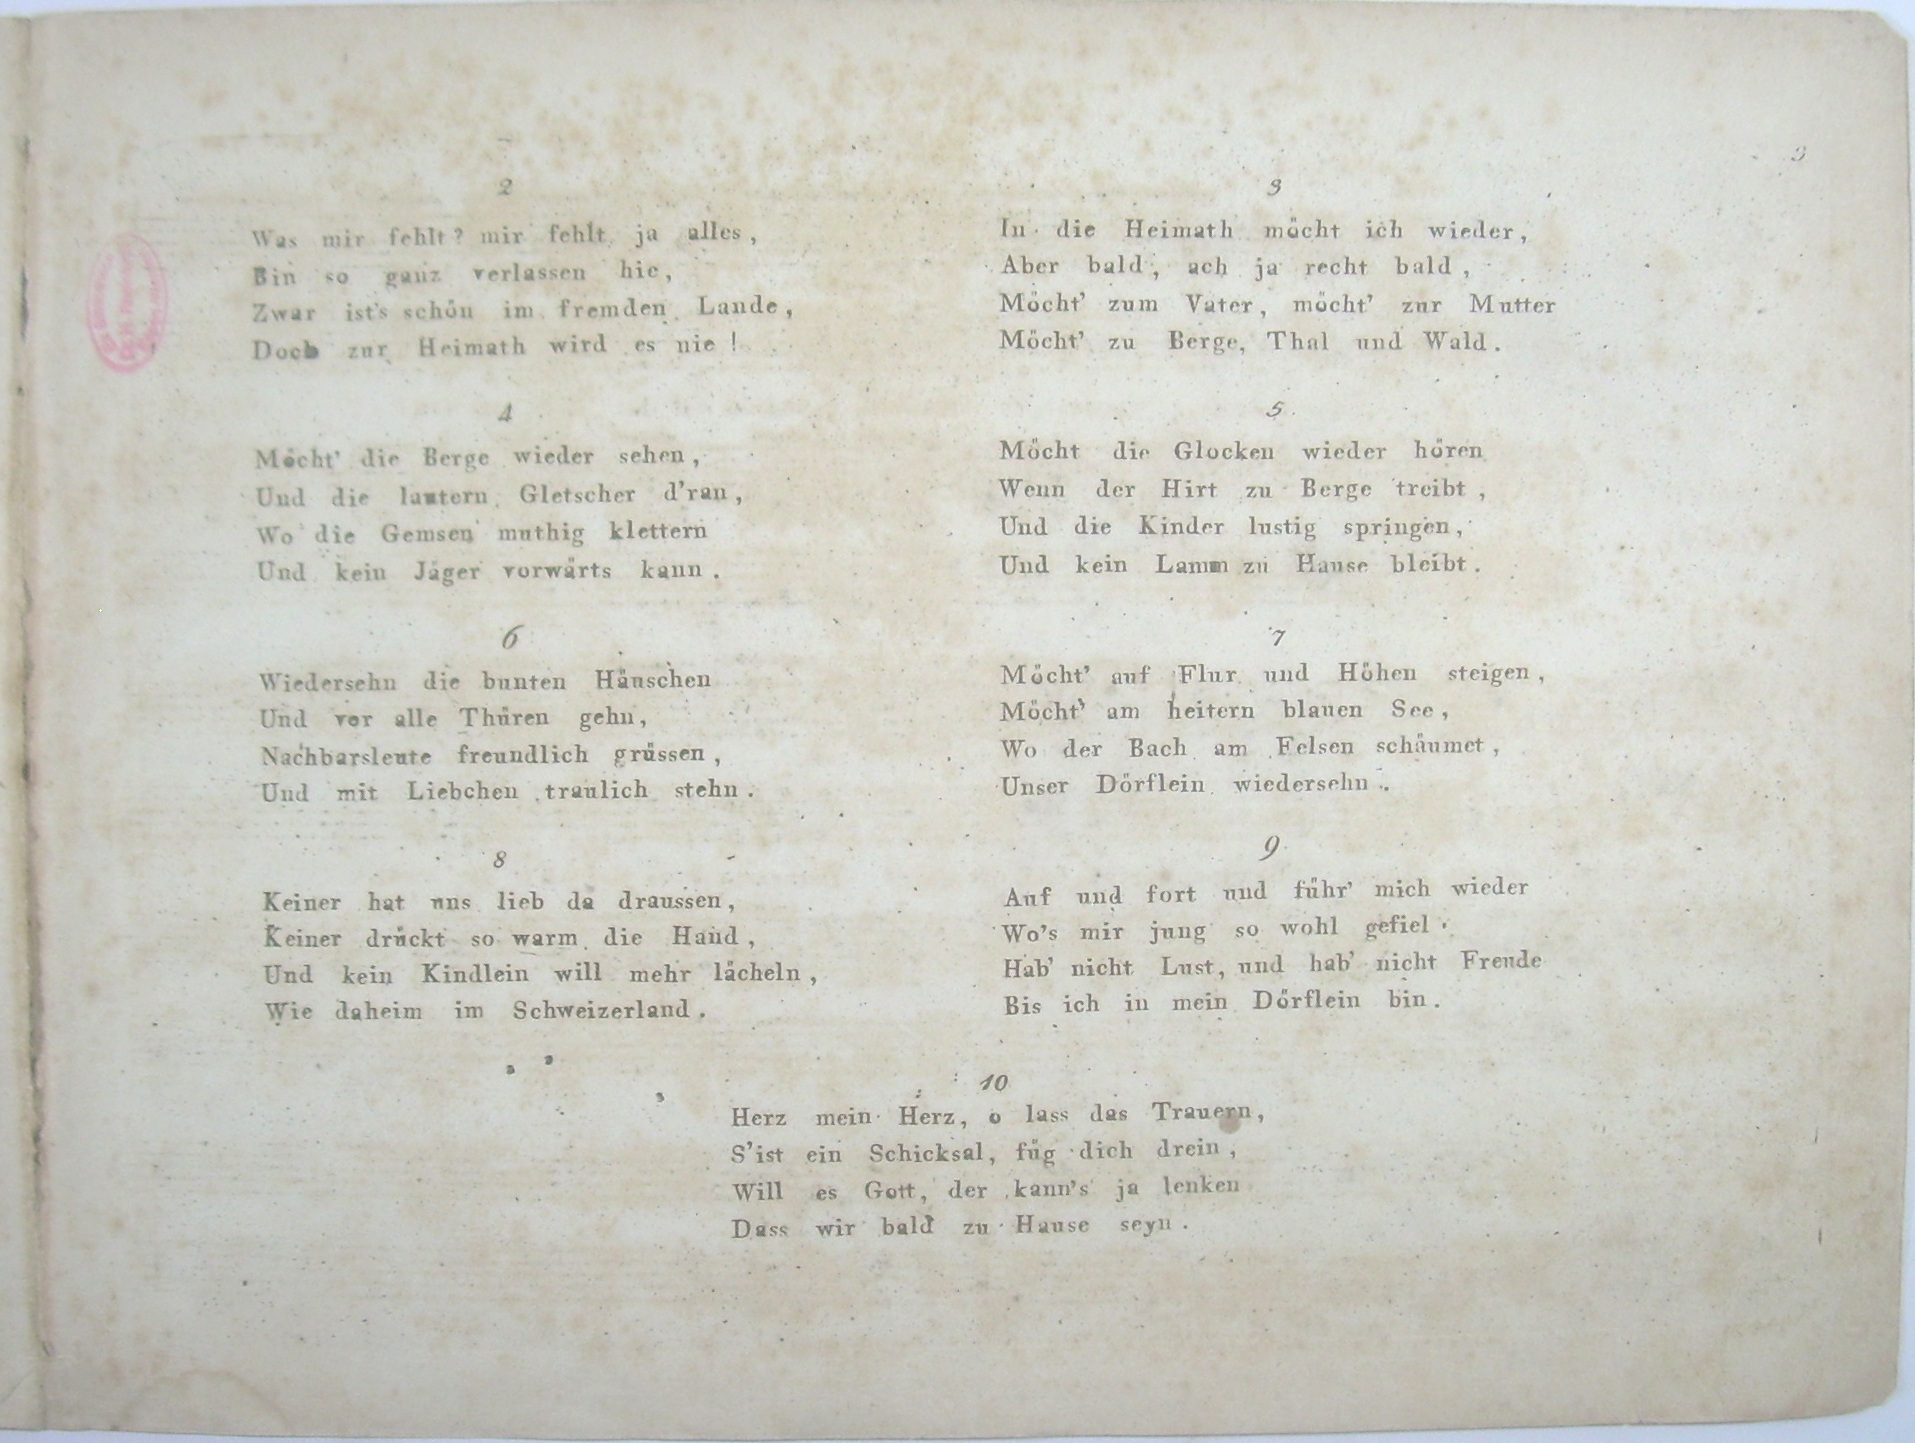 3
2
Was mir fehlt? mir fehlt ja alles,
Bin so ganz verlassen hie,
Zwar ist's schön im fremden Lande,
Doch zur Heimath wird es nie!
3
In die Heimath möcht ich wieder,
Aber bald, ach ja recht bald,
Möcht' zum Vater, möcht' zur Mutter
Möcht' zu Berge, Thal und Wald.
4
Möcht' die Berge wieder sehen,
Und die lautern Gletscher d'ran,
Wo die Gemsen muthig klettern
Und kein Jäger vorwärts kann.
5
Möcht die Glocken wieder hören
Wenn der Hirt zu Berge treibt,
Und die Kinder lustig springen,
Und kein Lamm zu Hause bleibt.
6
Wiedersehn die bunten Häuschen
Und vor alle Thüren gehn,
Nachbarsleute freundlich grüssen,
Und mit Liebchen traulich stehn.
7
Möcht' auf Flur und Höhen steigen,
Möcht' am heitern blauen See,
Wo der Bach am Felsen schäumet,
Unser Dörflein wiedersehn.
8
Keiner hat uns lieb da draussen,
Keiner drückt so warm die Hand,
Und kein Kindlein will mehr lächeln,
Wie daheim im Schweizerland.
9
Auf und fort und führ' mich wieder
Wo's mir jung so wohl gefiel.
Hab' nicht Lust, und hab' nicht Freude
Bis ich in mein Dörflein bin.
10
Herz mein Herz, o lass das Trauern,
S'ist ein Schicksal, füg dich drein,
Will es Gott, der kann's ja lenken
Dass wir bald zu Hause seyn.